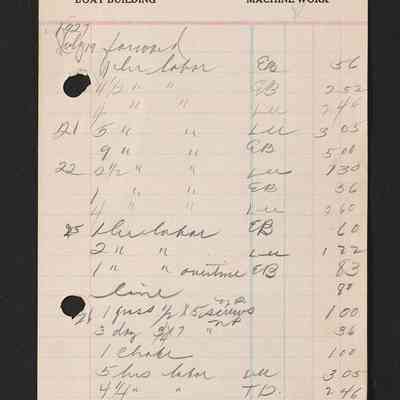 BOAT BUILDING MACHINE WORK
1927
July 19 forward
1 hr labor EB 56
4 1/2 " " EB 2 52
4 " " Lee 2 44
21 5 " " Lee 3 05
9 " " EB 5 00
22 2 1/2 " " Lee 1 30
1 " " EB 56
4 " " Lee 2 60
25 1 hr labor EB 60
2 " " Lee 1 22
1 " " overtime EB 83
line 80
26 1 gross 1/2 x 5 screws NP 1 00
3 doz 3/4 7 " NP 36
1 chock 1 00
5 hrs labor Lee 3 05
4 1/4 " " T.D. 2 46